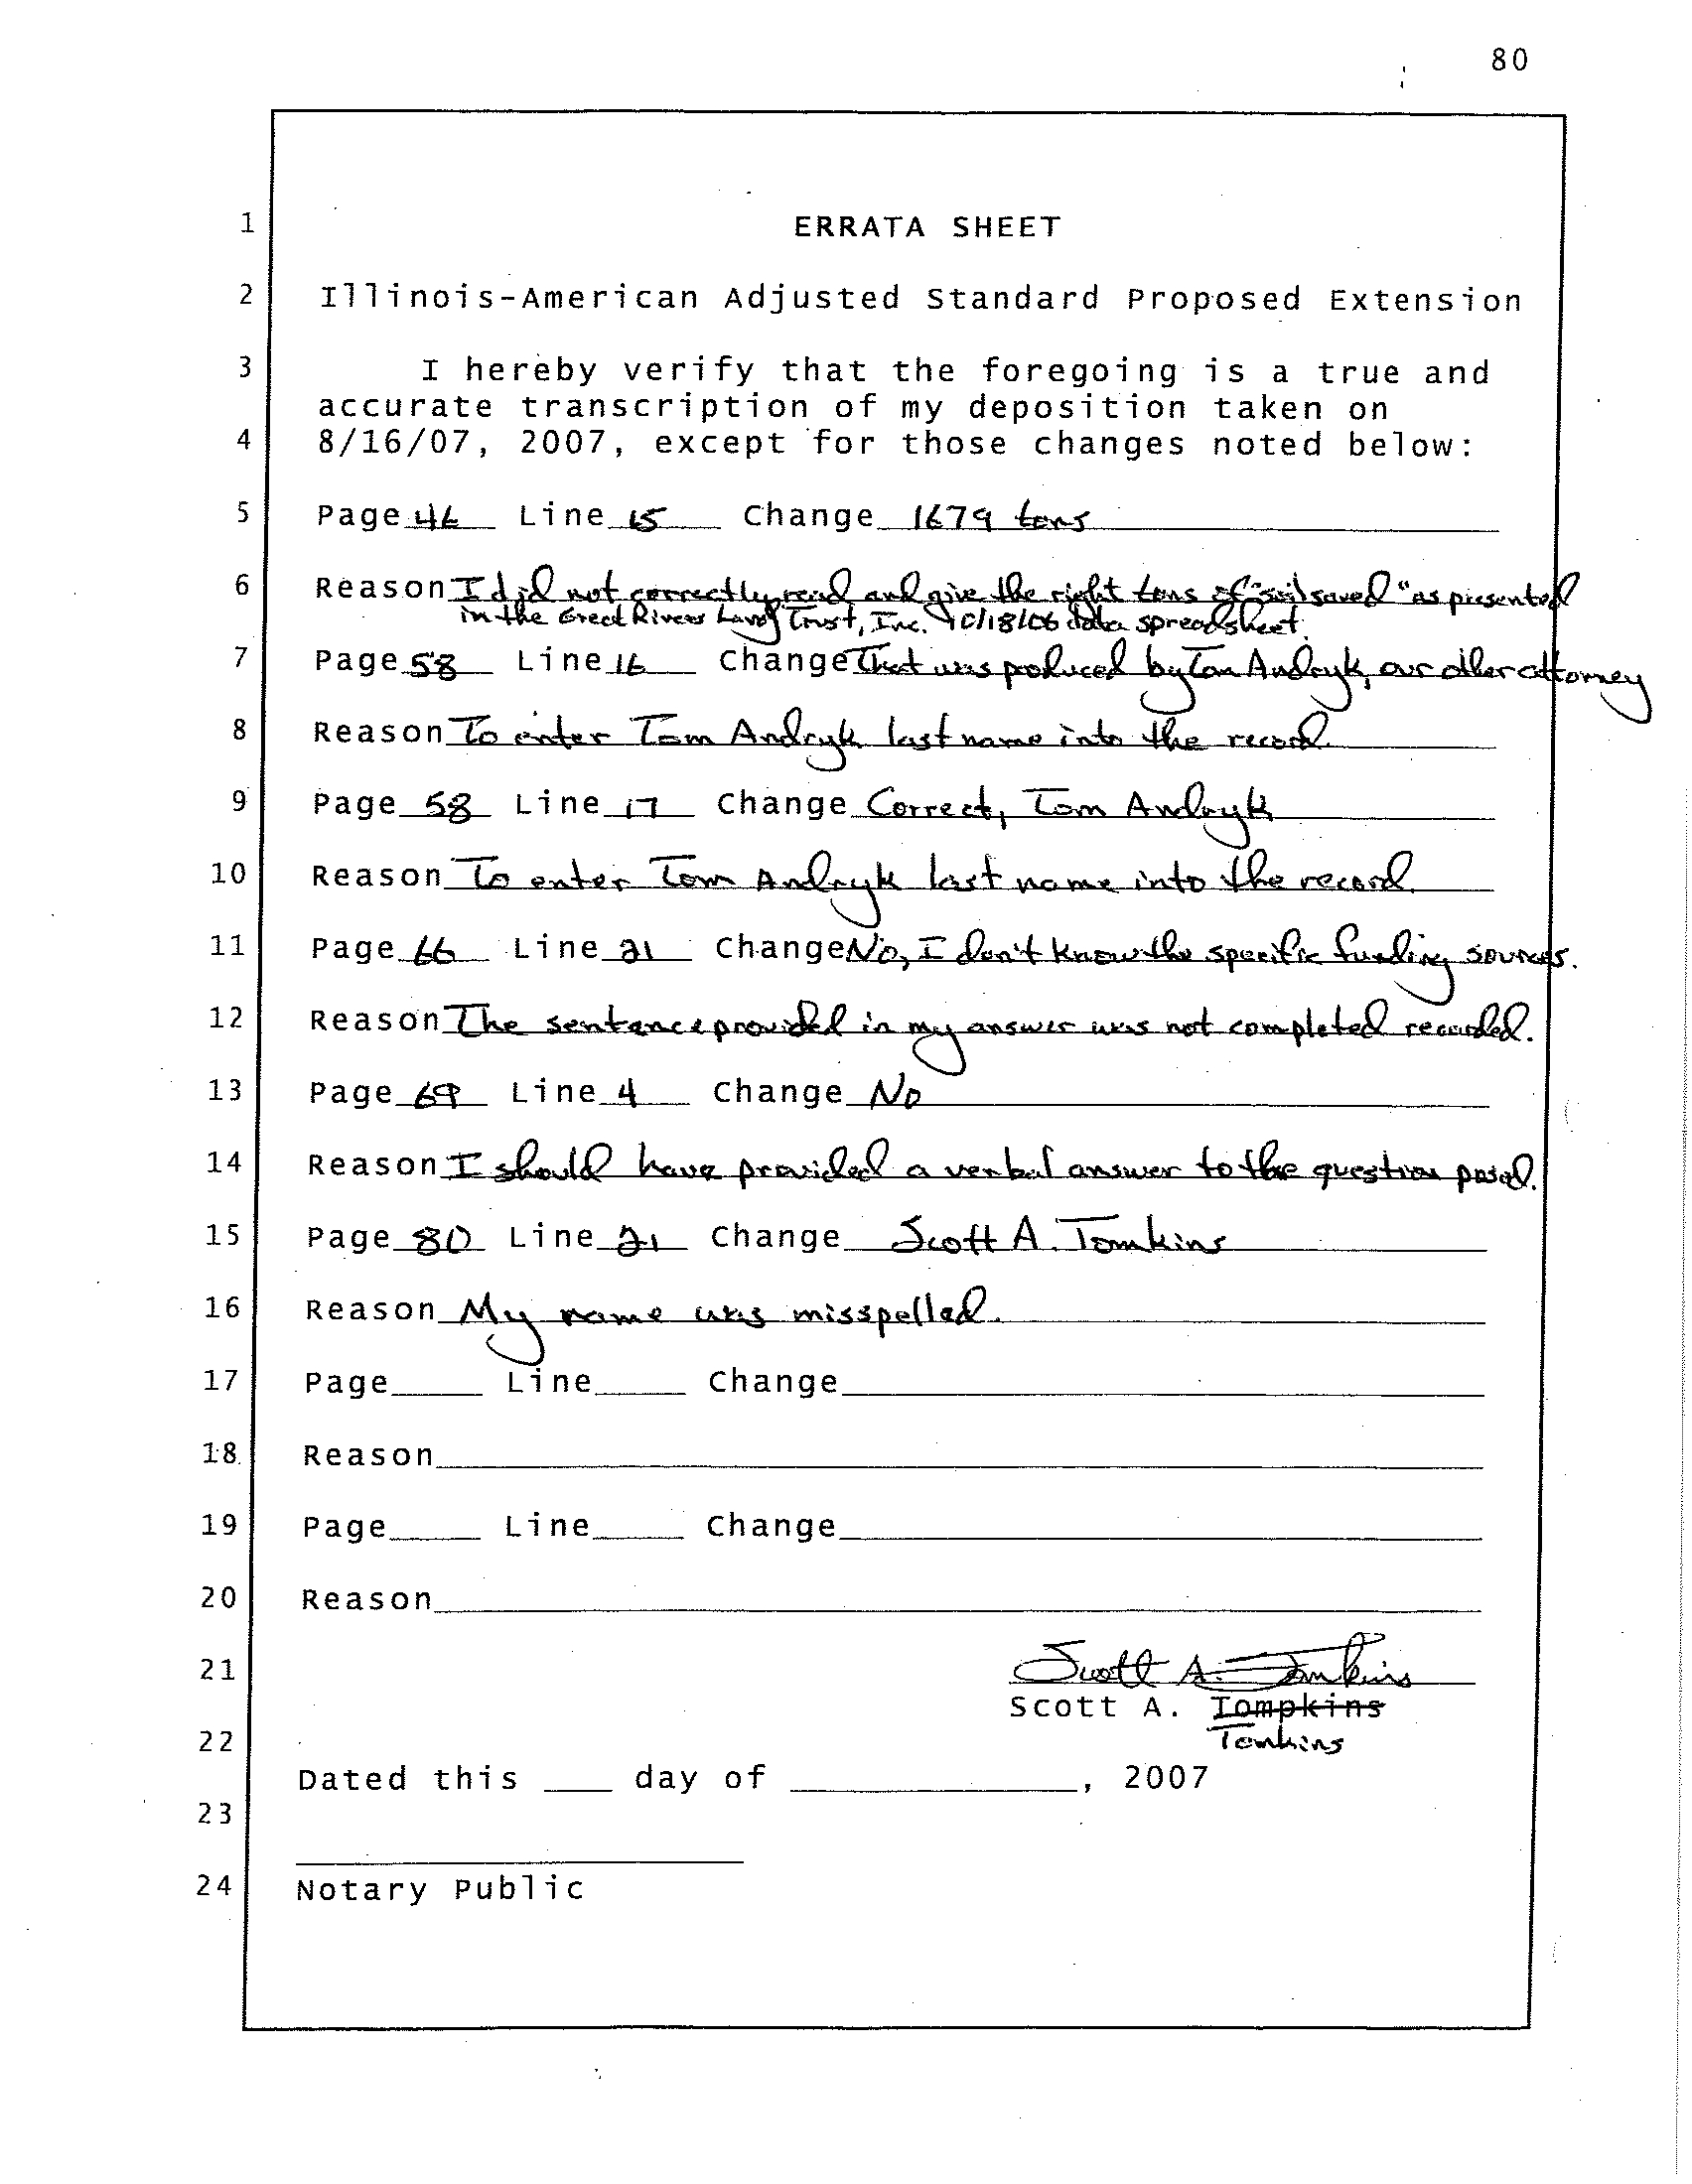 80
1 ERRATA SHEET
2 Illinois-American Adjusted Standard Proposed Extension
3 I hereby verify that the foregoing is a true and
accurate transcription of my deposition taken on
4 8/16/07, 2007, except for those changes noted below:
5 Page 46 Line 15 Change 1679 tons
6 Reason I did not correctly read and give the right tons of "soil saved" as presented
in the Great Rivers Land Trust, Inc. 10/18/06 data spreadsheet.
7 Page 58 Line 16 Change That was produced by Tom Andryk, our other attorney
8 Reason To enter Tom Andryk last name into the record.
9 Page 58 Line 17 Change Correct, Tom Andryk
10 Reason To enter Tom Andryk last name into the record.
11 Page 66 Line 21 Change No, I don't know the specific funding sources.
12 Reason The sentence provided in my answer was not completed recorded.
13 Page 69 Line 4 Change No
14 Reason I should have provided a verbal answer to the question posed.
15 Page 80 Line 21 Change Scott A. Tomkins
16 Reason My name was misspelled.
17 Page Line Change
18 Reason
19 Page Line Change
20 Reason
21 Scott A. Tomkins
Scott A. Tompkins
22 Tomkins
Dated this ___ day of ___, 2007
23
24 Notary Public